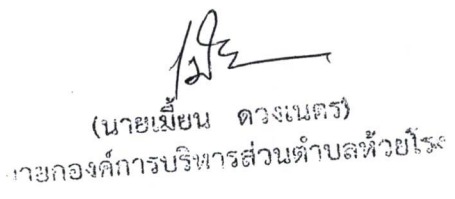 (นายเมี้ยน ดวงเนตร)
นายกองค์การบริหารส่วนตำบลห้วยโรง